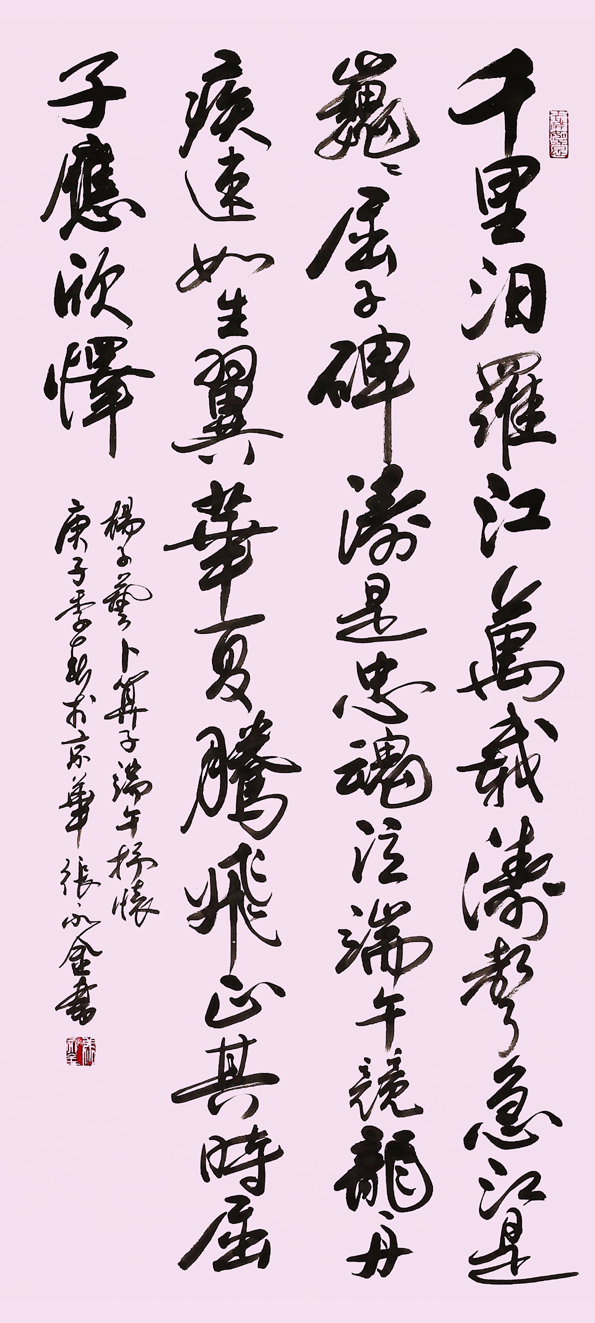 千里汨羅江萬載濤聲急江是
巍々屈子碑濤是忠魂泣端午競龍舟
疾速如生翼華夏騰飛正其時屈
子應欣懌
楊子藝卜算子端午抒懷
庚子季春於京華張永金書